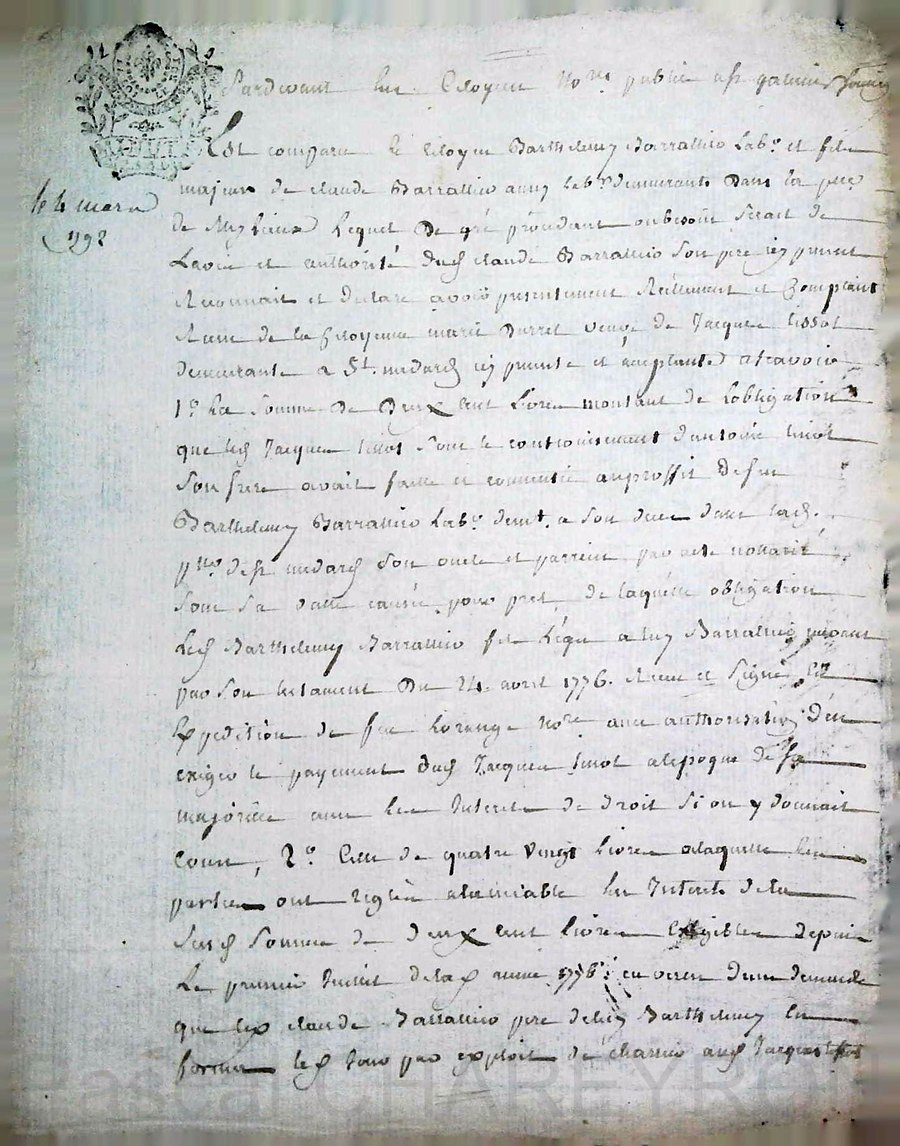 Pardevant les Citoyens No.res public
Est comparu le Citoyen Barthelemy Barrallio Lab.r et fils
majeur de claude Barrallio aussy lab.r demeurants Dans la p.sse
le 4 mars
1792
de Lequel De gré procedant au besoin serait de
Lavis et authorité dud claude Barrallio Son pere icy present
Reconnait et declare avoir presentement Reellement et Comptant
Recu de la Citoyenne marie veuve de Jacques tissot
demeurante a St. medard icy presente et acceptante ascavoir
1.° La Somme De Deux cent Livres montant de Lobligation
que led Jacques tissot Sous le cautionnement dantoine tissot
Son frere avait faitte et consentie au proffit De feu
Barthelemy Barrallio Lab.r dem.t a son deces dans lad.
p.sse de St medard Son oncle et parrein par acte nottarié
Sous Sa datte causée pour pret, de laquelle obligation
Led Barthelemy Barrallio fit Legs a luy Barrallio
par Son testament Du 24. avril 1776. Recu et Signé En
Expedition de feu Lorange No.re avec authorisation d'en
exiger le payement dud Jacques tissot alepoque de Sa
majorité avec les Interets de droit Si on y donnait
Cours, 2.° Celle de quatre vingt Livres alaquelle les
parties ont reglé alamiable les Interets de la
Susd Somme de deux cent livres Exigibles depuis
Le premier de lad année 1776 en vertu dune demande
que led claude Barrallio pere deluy Barthelemy en
forma led Jour par exploit de charrio aud Jacques tissot
Pascal CHAREYRON